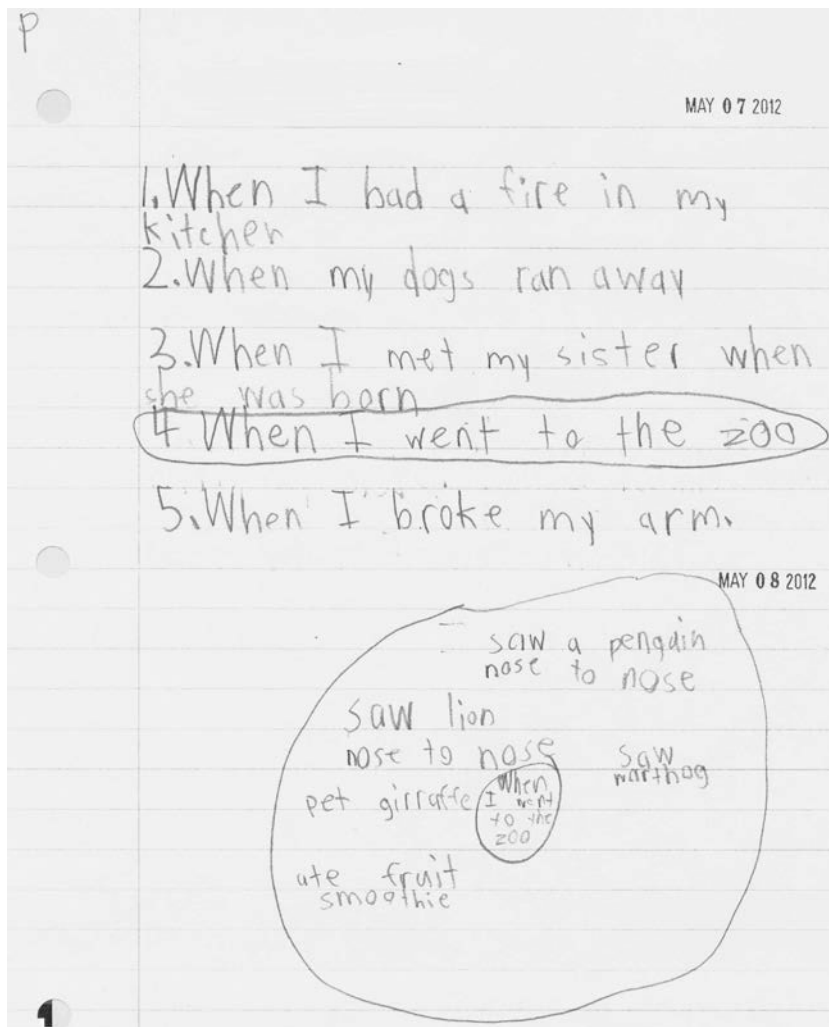 P
MAY 07 2012
1. When I had a fire in my
kitchen
2. When my dogs ran away
3. When I met my sister when
she was born
4 When I went to the zoo
5. When I broke my arm.
MAY 08 2012
saw a pengain
nose to nose
saw lion
nose to nose
saw
warthog
pet girraffe
When
I went
to the
zoo
ate fruit
smoothie
1